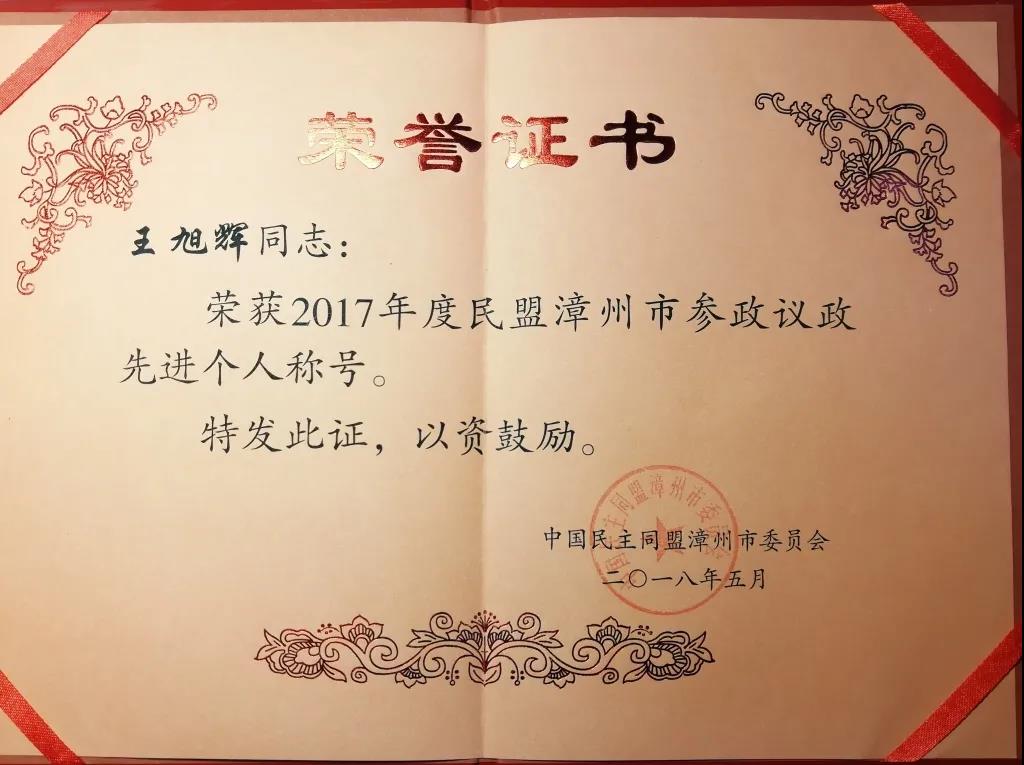 荣誉证书
王旭辉同志：
荣获2017年度民盟漳州市参政议政
先进个人称号。
特发此证，以资鼓励。
中国民主同盟漳州市委员会
二〇一八年五月
中国民主同盟漳州市委员会